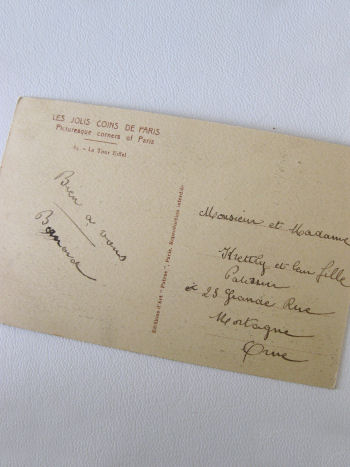 LES JOLIS COINS DE PARIS
Picturesque corners of Paris
La Tour Eiffel
Bien à vous
Editions d'Art " " Paris. Reproduction interdite.
Monsieur et Madame
et leur fille
23 Grande Rue
Mortagne
Orne